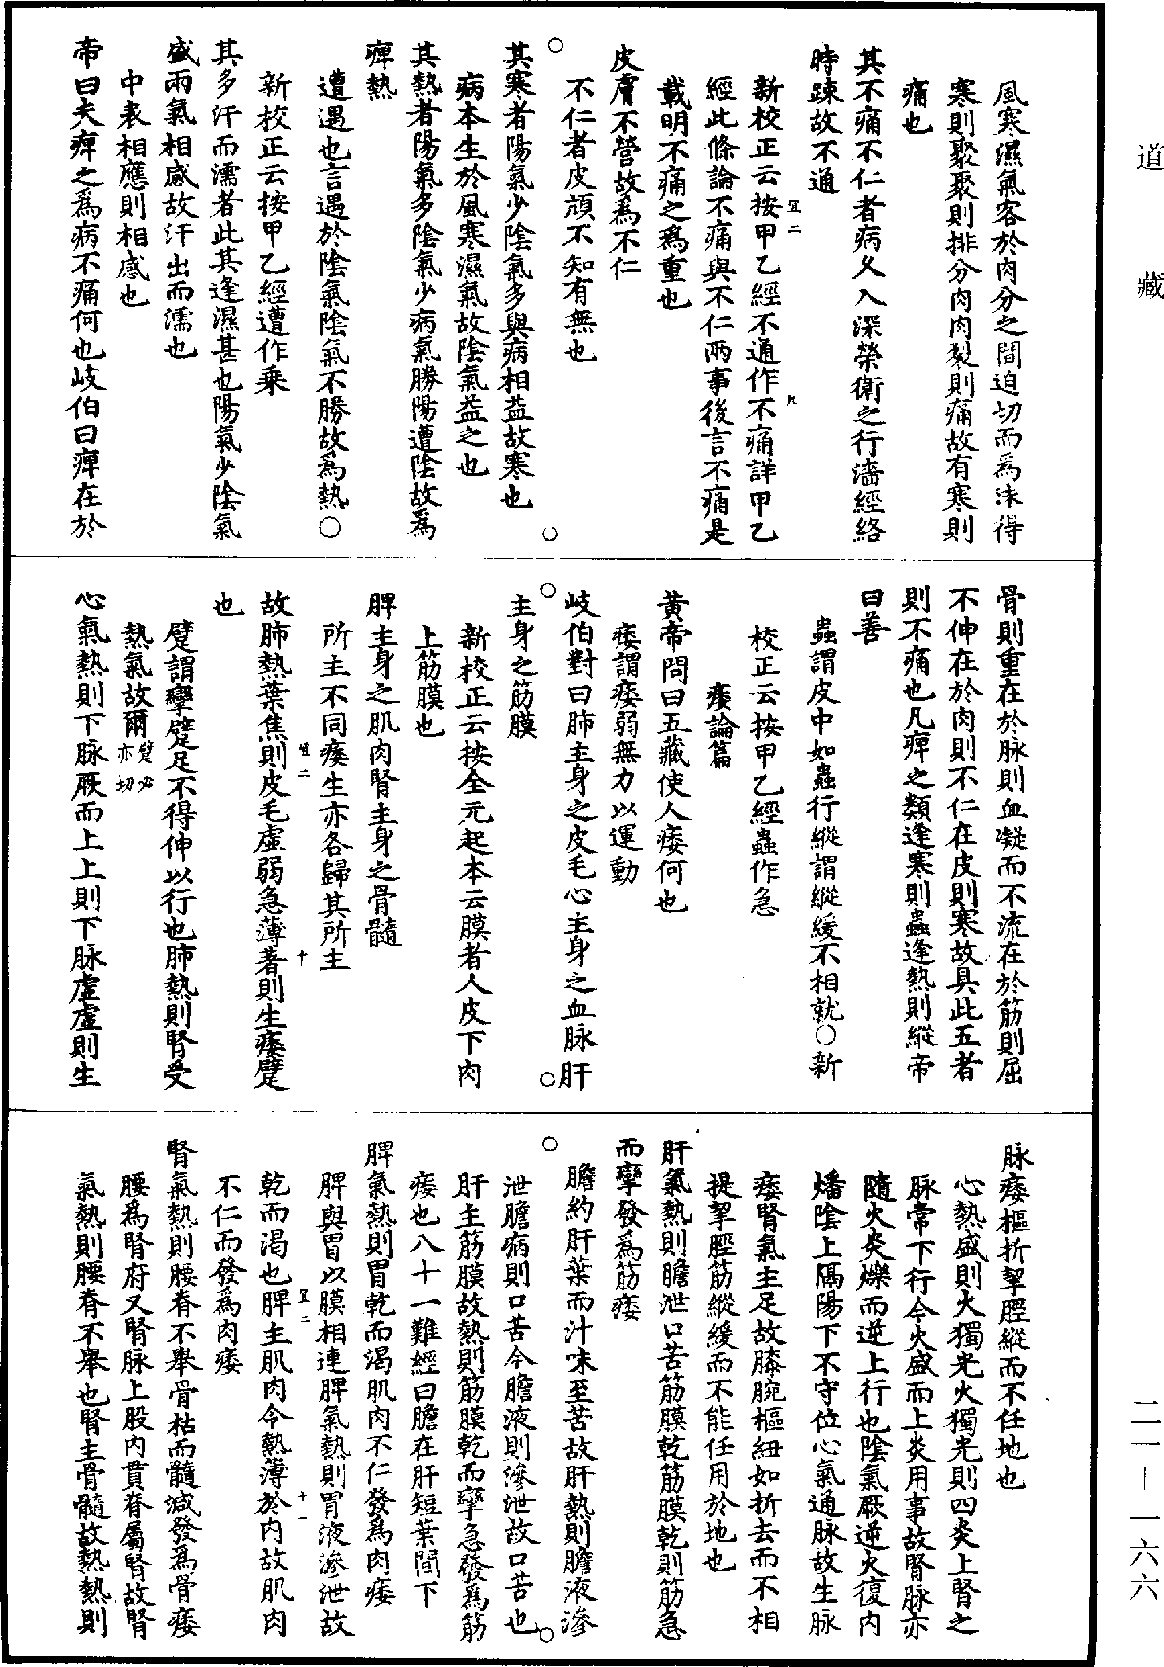 道藏
風寒濕氣客於肉分之間迫切而爲沫得
寒則聚聚則排分肉肉裂則痛故有寒則
痛也
其不痛不仁者病久入深榮衛之行濇經絡
時踈故不通
新校正云按甲乙經不通作不痛詳甲乙
經此條論不痛與不仁兩事後言不痛是
載明不痛之爲重也
皮膚不營故爲不仁
不仁者皮頑不知有無也
其寒者陽氣少陰氣多與病相益故寒也
病本生於風寒濕氣故陰氣益之也
其熱者陽氣多陰氣少病氣勝陽遭陰故爲
痺熱
遭遇也言遇於陰氣陰氣不勝故爲熱○
新校正云按甲乙經遭作乘
其多汗而濡者此其逢濕甚也陽氣少陰氣
盛兩氣相感故汗出而濡也
中表相應則相感也
帝曰夫痺之爲病不痛何也岐伯曰痺在於
骨則重在於脉則血凝而不流在於筋則屈
不伸在於肉則不仁在皮則寒故具此五者
則不痛也凡痺之類逢寒則蟲逢熱則縱帝
曰善
蟲謂皮中如蟲行縱謂縱緩不相就○新
校正云按甲乙經蟲作急
痿論篇
黄帝問曰五藏使人痿何也
痿謂痿弱無力以運動
岐伯對曰肺主身之皮毛心主身之血脉肝
主身之筋膜
新校正云按全元起本云膜者人皮下肉
上筋膜也
脾主身之肌肉腎主身之骨髓
所主不同痿生亦各歸其所主
故肺熱葉焦則皮毛虛弱急薄著則生痿躄
也
躄謂攣躄足不得伸以行也肺熱則腎受
熱氣故爾躄必亦切
心氣熱則下脉厥而上上則下脉虛虛則生
脉痿樞折挈脛縱而不任地也
心熱盛則火獨光火獨光則四炎上腎之
脉常下行今火盛而上炎用事故腎脉亦
隨火炎爍而逆上行也陰氣厥逆火復内
燔陰上隔陽下不守位心氣通脉故生脉
痿腎氣主足故膝腕樞紐如折去而不相
提挈脛筋縱緩而不能任用於地也
肝氣熱則膽泄口苦筋膜乾筋膜乾則筋急
而攣發爲筋痿
膽約肝葉而汁味至苦故肝熱則膽液滲
泄膽病則口苦今膽液則滲泄故口苦也
肝主筋膜故熱則筋膜乾而攣急發爲筋
痿也八十一難經曰膽在肝短葉間下
脾氣熱則胃乾而渴肌肉不仁發爲肉痿
脾與胃以膜相連脾氣熱則胃液滲泄故
乾而渴也脾主肌肉今熱薄於内故肌肉
不仁而發爲肉痿
腎氣熱則腰脊不舉骨枯而髓減發爲骨痿
腰爲腎府又腎脉上股内貫脊屬腎故腎
氣熱則腰脊不舉也腎主骨髓故熱熱則
二一—一六六